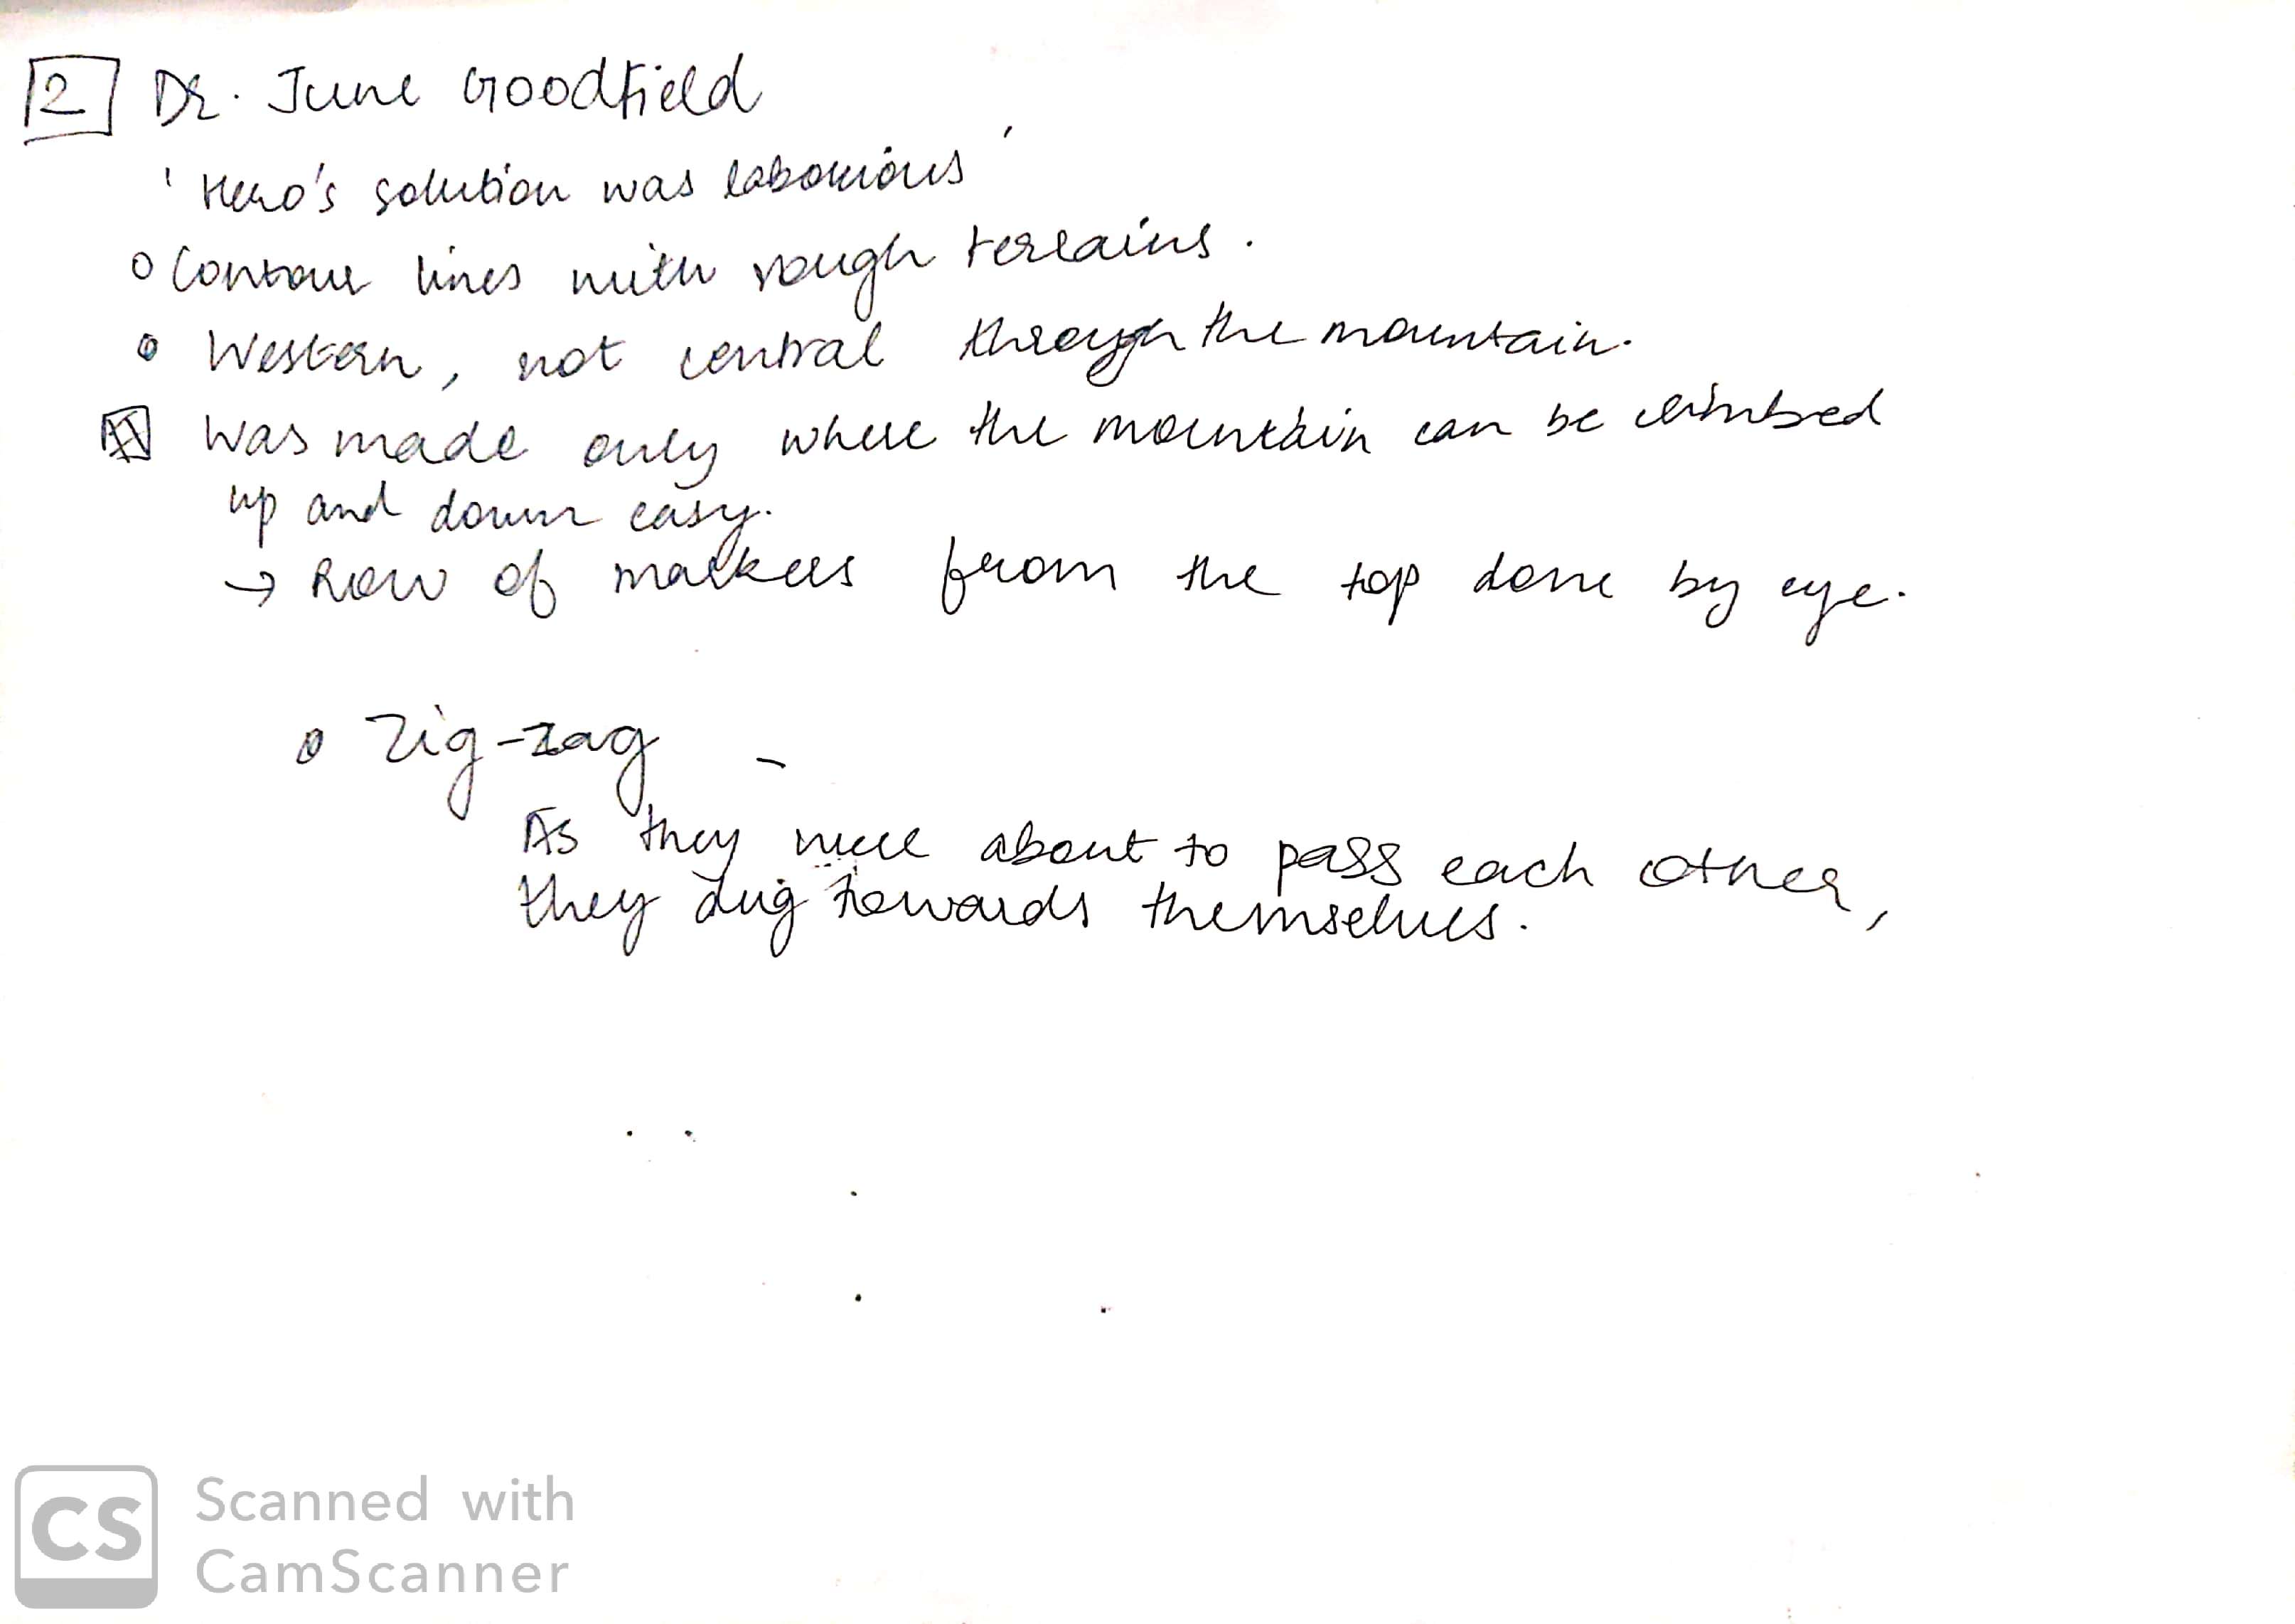 2 Dr. June Goodfield
'Hero's solution was laborious'
o Contour lines with rough terrains.
o Western, not central through the mountain.
Was made only where the mountain can be climbed
up and down easy.
→ Row of markers from the top done by eye.
o Zig-zag -
As they were about to pass each other,
they dug towards themselves.
CS Scanned with
CamScanner